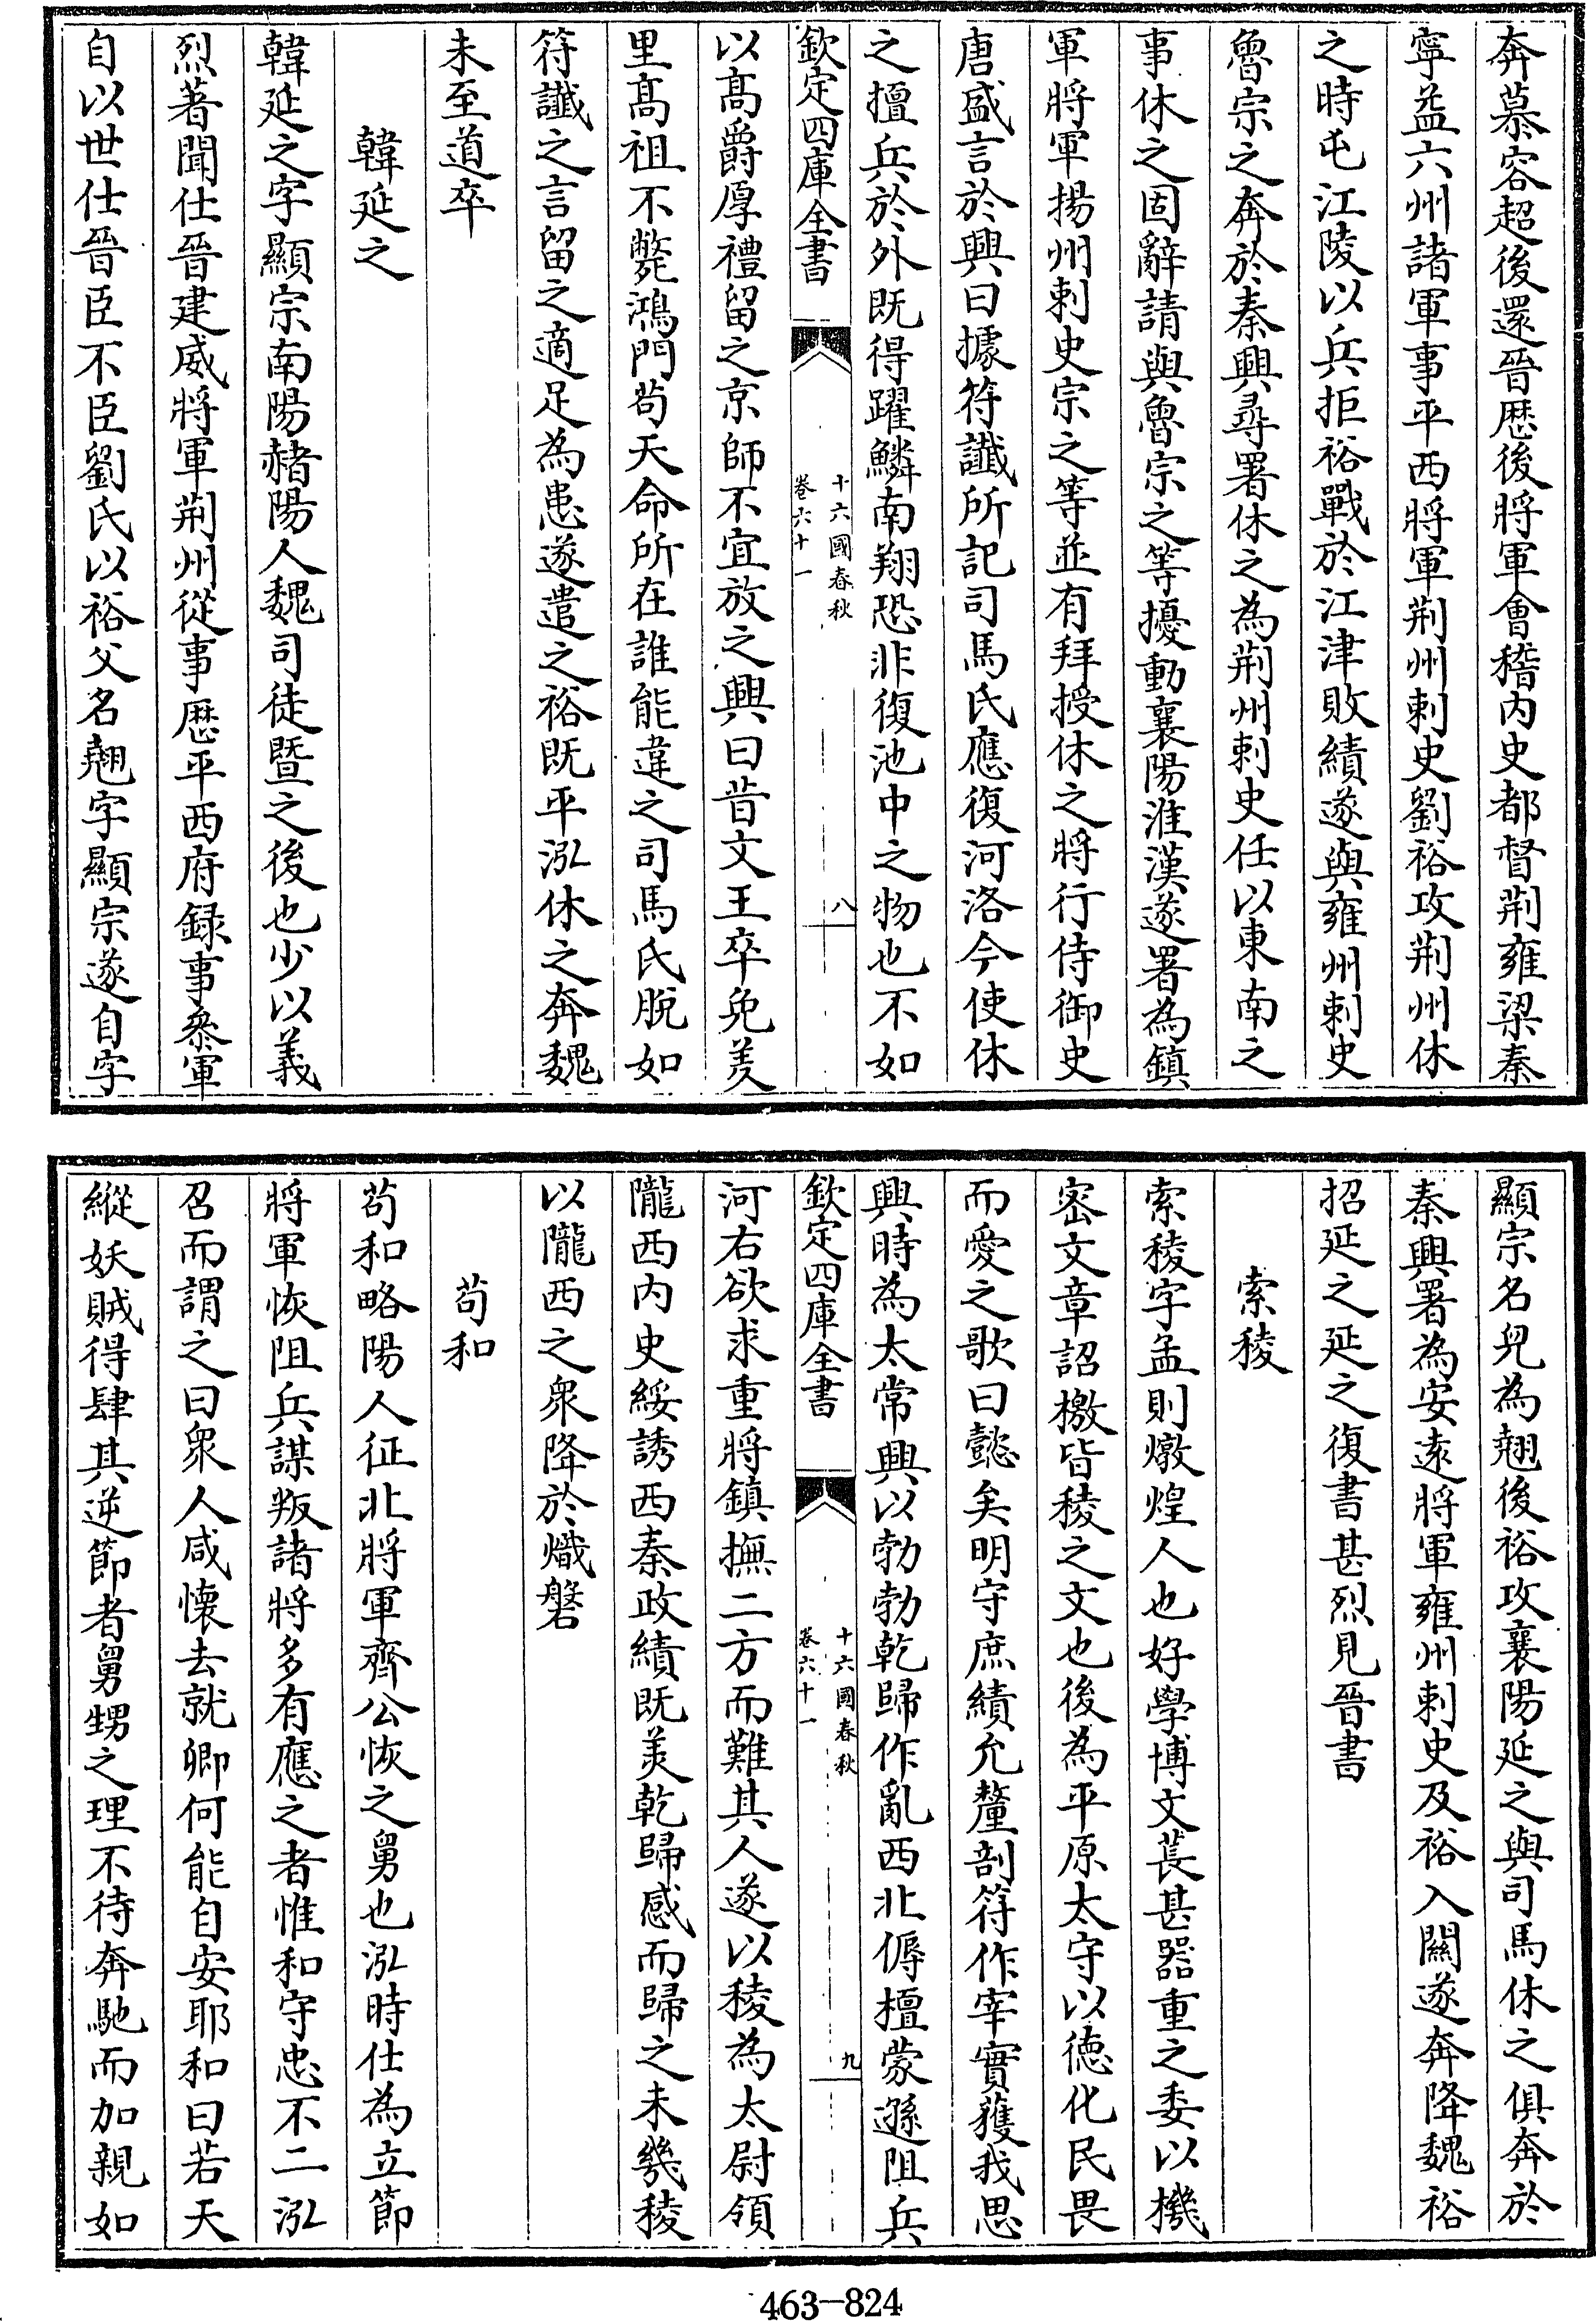 奔慕容超後還晉歷後將軍會稽内史都督荆雍梁秦
寧益六州諸軍事平西將軍荆州刺史劉裕攻荆州休
之時屯江陵以兵拒裕戰於江津敗績遂與雍州刺史
魯宗之奔於秦興尋署休之為荆州刺史任以東南之
事休之固辭請與魯宗之等擾動襄陽淮漢遂署為鎮
軍將軍揚州刺史宗之等並有拜授休之將行侍御史
唐盛言於興曰據符讖所記司馬氏應復河洛今使休
之擅兵於外既得躍鱗南翔恐非復池中之物也不如
欽定四庫全書
十六國春秋
卷六十一
八
以髙爵厚禮留之京師不宜放之興曰昔文王卒免羑
里髙祖不斃鴻門苟天命所在誰能違之司馬氏脫如
符讖之言留之適足為患遂遣之裕既平泓休之奔魏
未至道卒
韓延之
韓延之字顯宗南陽赭陽人魏司徒暨之後也少以義
烈著聞仕晉建威將軍荆州從事歷平西府録事叅軍
自以世仕晉臣不臣劉氏以裕父名翹字顯宗遂自字
顯宗名兒為翹後裕攻襄陽延之與司馬休之俱奔於
秦興署為安遠將軍雍州刺史及裕入關遂奔降魏裕
招延之延之復書甚烈見晉書
索稜
索稜字孟則燉煌人也好學博文萇甚器重之委以機
密文章詔檄皆稜之文也後為平原太守以德化民畏
而愛之歌曰懿矣明守庶績允釐剖符作宰實獲我思
興時為太常興以勃勃乾歸作亂西北傉檀蒙遜阻兵
欽定四庫全書
十六國春秋
卷六十一
九
河右欲求重將鎮撫二方而難其人遂以稜為太尉領
隴西内史綏誘西秦政績既美乾歸感而歸之未幾稜
以隴西之衆降於熾磐
苟和
苟和略陽人征北將軍齊公恢之舅也泓時仕為立節
將軍恢阻兵謀叛諸將多有應之者惟和守忠不二泓
召而謂之曰衆人咸懷去就卿何能自安耶和曰若天
縱妖賊得肆其逆節者舅甥之理不待奔馳而加親如
463-824